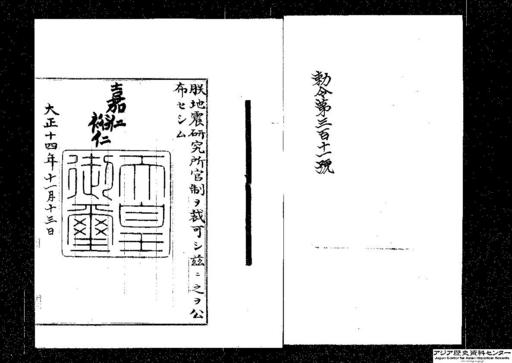 勅令第三百十一號
朕地震研究所官制ヲ裁可シ茲ニ之ヲ公
布セシム
嘉仁
裕仁
天皇
御璽
大正十四年十一月十三日
アジア歴史資料センター
Japan Center for Asian Historical Records